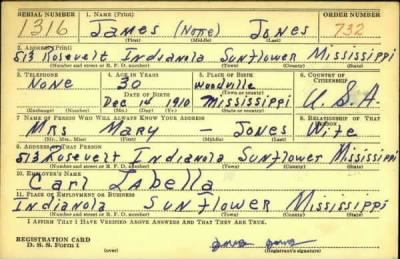 SERIAL NUMBER 1. NAME (Print) ORDER NUMBER
1316 James (None) Jones 732
(First) (Middle) (Last)
2. ADDRESS (Print)
513 Rosevelt Indianola Sunflower Mississippi
(Number and street or R. F. D. number) (Town) (County) (State)
3. TELEPHONE 4. AGE IN YEARS 5. PLACE OF BIRTH 6. COUNTRY OF CITIZENSHIP
None 30 Woodville
DATE OF BIRTH (Town or county)
Dec 1st 1910 Mississippi U.S.A.
(Exchange) (Number) (Mo.) (Day) (Yr.) (State or country)
7. NAME OF PERSON WHO WILL ALWAYS KNOW YOUR ADDRESS 8. RELATIONSHIP OF THAT PERSON
Mrs Mary — Jones Wife
(Mr., Mrs., Miss) (First) (Middle) (Last)
9. ADDRESS OF THAT PERSON
513 Rosevelt Indianola Sunflower Mississippi
(Number and street or R. F. D. number) (Town) (County) (State)
10. EMPLOYER'S NAME
Carl Labella
11. PLACE OF EMPLOYMENT OR BUSINESS
Indianola Sunflower Mississippi
(Number and street or R. F. D. number) (Town) (County) (State)
I AFFIRM THAT I HAVE VERIFIED ABOVE ANSWERS AND THAT THEY ARE TRUE.
REGISTRATION CARD
D. S. S. Form 1 (over) (Registrant's signature)